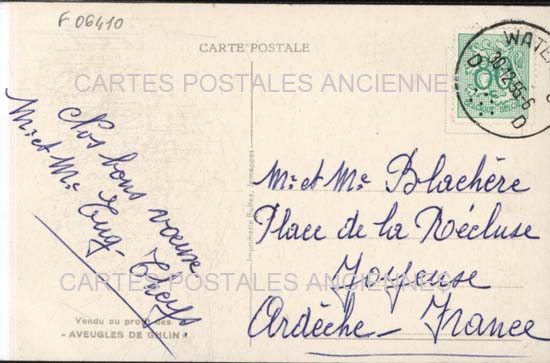 F 06410
CARTE POSTALE
CARTES POSTALES ANCIENNES
WATE
30.12.55-6
D D
Nos bons vœux
Mr. et Me
Eug.
Mr. et Me Blachère
Place de la Récluse
Joyeuse
Ardèche - France
CARTES POSTALES ANCIENNES
Vendu au profit des
"AVEUGLES DE GHLIN"